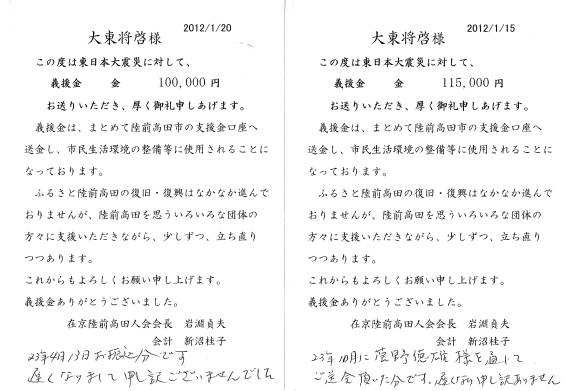 2012/1/20
大東将啓様
この度は東日本大震災に対して、
義援金 金 100,000 円
お送りいただき、厚く御礼申しあげます。
義援金は、まとめて陸前高田市の支援金口座へ
送金し、市民生活環境の整備等に使用されることに
なっております。
ふるさと陸前高田の復旧・復興はなかなか進んで
おりませんが、陸前高田を思ういろいろな団体の
方々に支援いただきながら、少しずつ、立ち直り
つつあります。
これからもよろしくお願い申し上げます。
義援金ありがとうございました。
在京陸前高田人会会長 岩淵貞夫
会計 新沼桂子
23年4月13日お振込分です
遅くなりまして申し訳ございませんでした
2012/1/15
大東将啓様
この度は東日本大震災に対して、
義援金 金 115,000 円
お送りいただき、厚く御礼申しあげます。
義援金は、まとめて陸前高田市の支援金口座へ
送金し、市民生活環境の整備等に使用されることに
なっております。
ふるさと陸前高田の復旧・復興はなかなか進んで
おりませんが、陸前高田を思ういろいろな団体の
方々に支援いただきながら、少しずつ、立ち直り
つつあります。
これからもよろしくお願い申し上げます。
義援金ありがとうございました。
在京陸前高田人会会長 岩淵貞夫
会計 新沼桂子
23年10月に菅野 様を通して
ご送金頂いた分です。遅くなり申し訳ありません